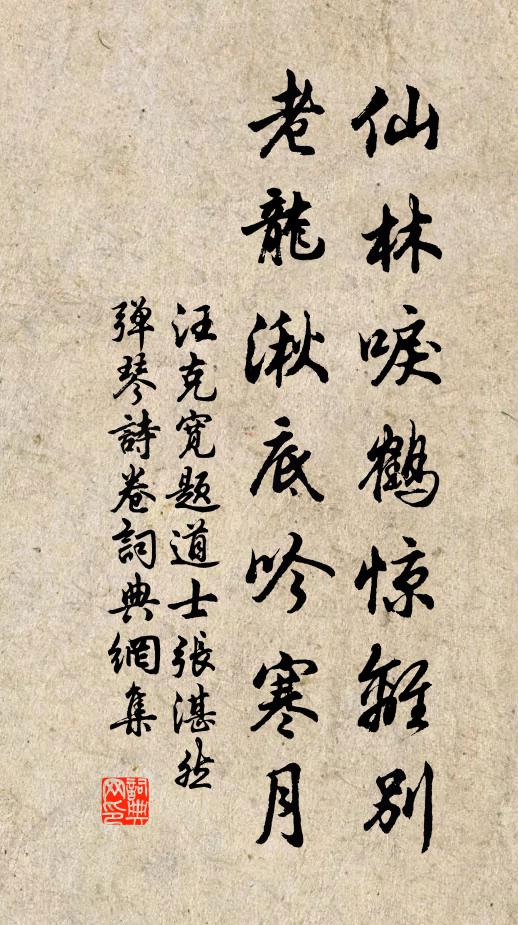 仙林唳鹤惊離别
老龍湫底吟寒月
汪克寬题道士張湛然
弹琴詩卷詞典網集
詞典网印